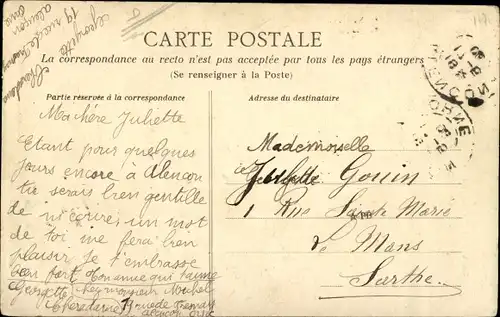 CARTE POSTALE
La correspondance au recto n'est pas acceptée par tous les pays étrangers
(Se renseigner à la Poste)
Partie réservée à la correspondance
Adresse du destinataire
Ma chère Juliette
Etant pour quelques
jours encore à Alençon
tu serais bien gentille
de m'écrire, un mot
de toi me fera bien
plaisir. Je t'embrasse
bien fort ton amie qui t'aime
Georgette chez monsieur
alençon orne
Mademoiselle
Juliette Gouin
1 Rue Sainte Marie
Le Mans
Sarthe
Georgette
19 rue
alençon
orne
ALENÇON
ORNE